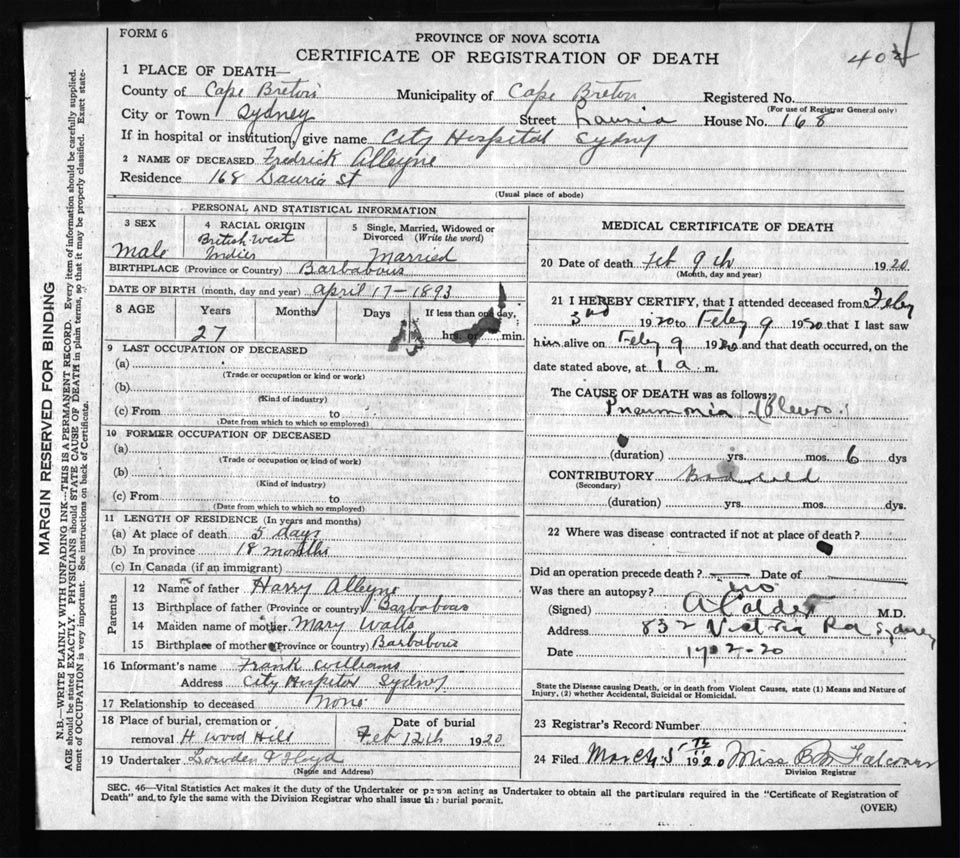 FORM 6
PROVINCE OF NOVA SCOTIA
CERTIFICATE OF REGISTRATION OF DEATH
402
1 PLACE OF DEATH—
County of Cape Breton Municipality of Cape Breton Registered No.
(For use of Registrar General only)
City or Town Sydney Street House No. 168
If in hospital or institution, give name City Hospital Sydney
2 NAME OF DECEASED Fredrick Alleyne
Residence 168 St
(Usual place of abode)
PERSONAL AND STATISTICAL INFORMATION
3 SEX male
4 RACIAL ORIGIN British West Indies
5 Single, Married, Widowed or Divorced (Write the word) Married
BIRTHPLACE (Province or Country) Barbabous
DATE OF BIRTH (month, day and year) April 17-1893
8 AGE Years Months Days If less than one day,
27 hrs. or min.
9 LAST OCCUPATION OF DECEASED
(a)
(Trade or occupation or kind or work)
(b)
(Kind of industry)
(c) From to
(Date from which to which so employed)
10 FORMER OCCUPATION OF DECEASED
(a)
(Trade or occupation or kind of work)
(b)
(Kind of industry)
(c) From to
(Date from which to which so employed)
11 LENGTH OF RESIDENCE (In years and months)
(a) At place of death 5 days
(b) In province 18 months
(c) In Canada (if an immigrant)
Parents
12 Name of father Harry Alleyne
13 Birthplace of father (Province or country) Barbabous
14 Maiden name of mother Mary Watts
15 Birthplace of mother (Province or country) Barbabous
16 Informant's name Frank Williams
Address City Hospital Sydney
17 Relationship to deceased None
18 Place of burial, cremation or Date of burial
removal H wood Hill Feb 12th 1920
19 Undertaker Lowden & Lloyd
(Name and Address)
MEDICAL CERTIFICATE OF DEATH
20 Date of death Feb 9th 1920
(Month, day and year)
21 I HEREBY CERTIFY, that I attended deceased from Feby
3rd 1920 to Feby 9 1920 that I last saw
him alive on Feby 9 1920 and that death occurred, on the
date stated above, at 1 a m.
The CAUSE OF DEATH was as follows:
Pneumonia (Pleuro.)
(duration) yrs. mos. 6 dys
CONTRIBUTORY Bad cold
(Secondary)
(duration) yrs. mos. dys.
22 Where was disease contracted if not at place of death?
Did an operation precede death? Date of
Was there an autopsy? no
(Signed) A Calder M.D.
Address 832 Victoria Rd Sydney
Date
State the Disease causing Death, or in death from Violent Causes, state (1) Means and Nature of
Injury, (2) whether Accidental, Suicidal or Homicidal.
23 Registrar's Record Number
24 Filed March 5th 1920 Miss Falconer
Division Registrar
SEC. 46—Vital Statistics Act makes it the duty of the Undertaker or person acting as Undertaker to obtain all the particulars required in the "Certificate of Registration of
Death" and to fyle the same with the Division Registrar who shall issue the burial permit.
(OVER)
MARGIN RESERVED FOR BINDING
N.B.—WRITE PLAINLY WITH UNFADING INK—THIS IS A PERMANENT RECORD. Every item of information should be carefully supplied.
AGE should be stated EXACTLY. PHYSICIANS should STATE CAUSE OF DEATH in plain terms, so that it may be properly classified. Exact state-
ment of OCCUPATION is very important. See instructions on back of Certificate.